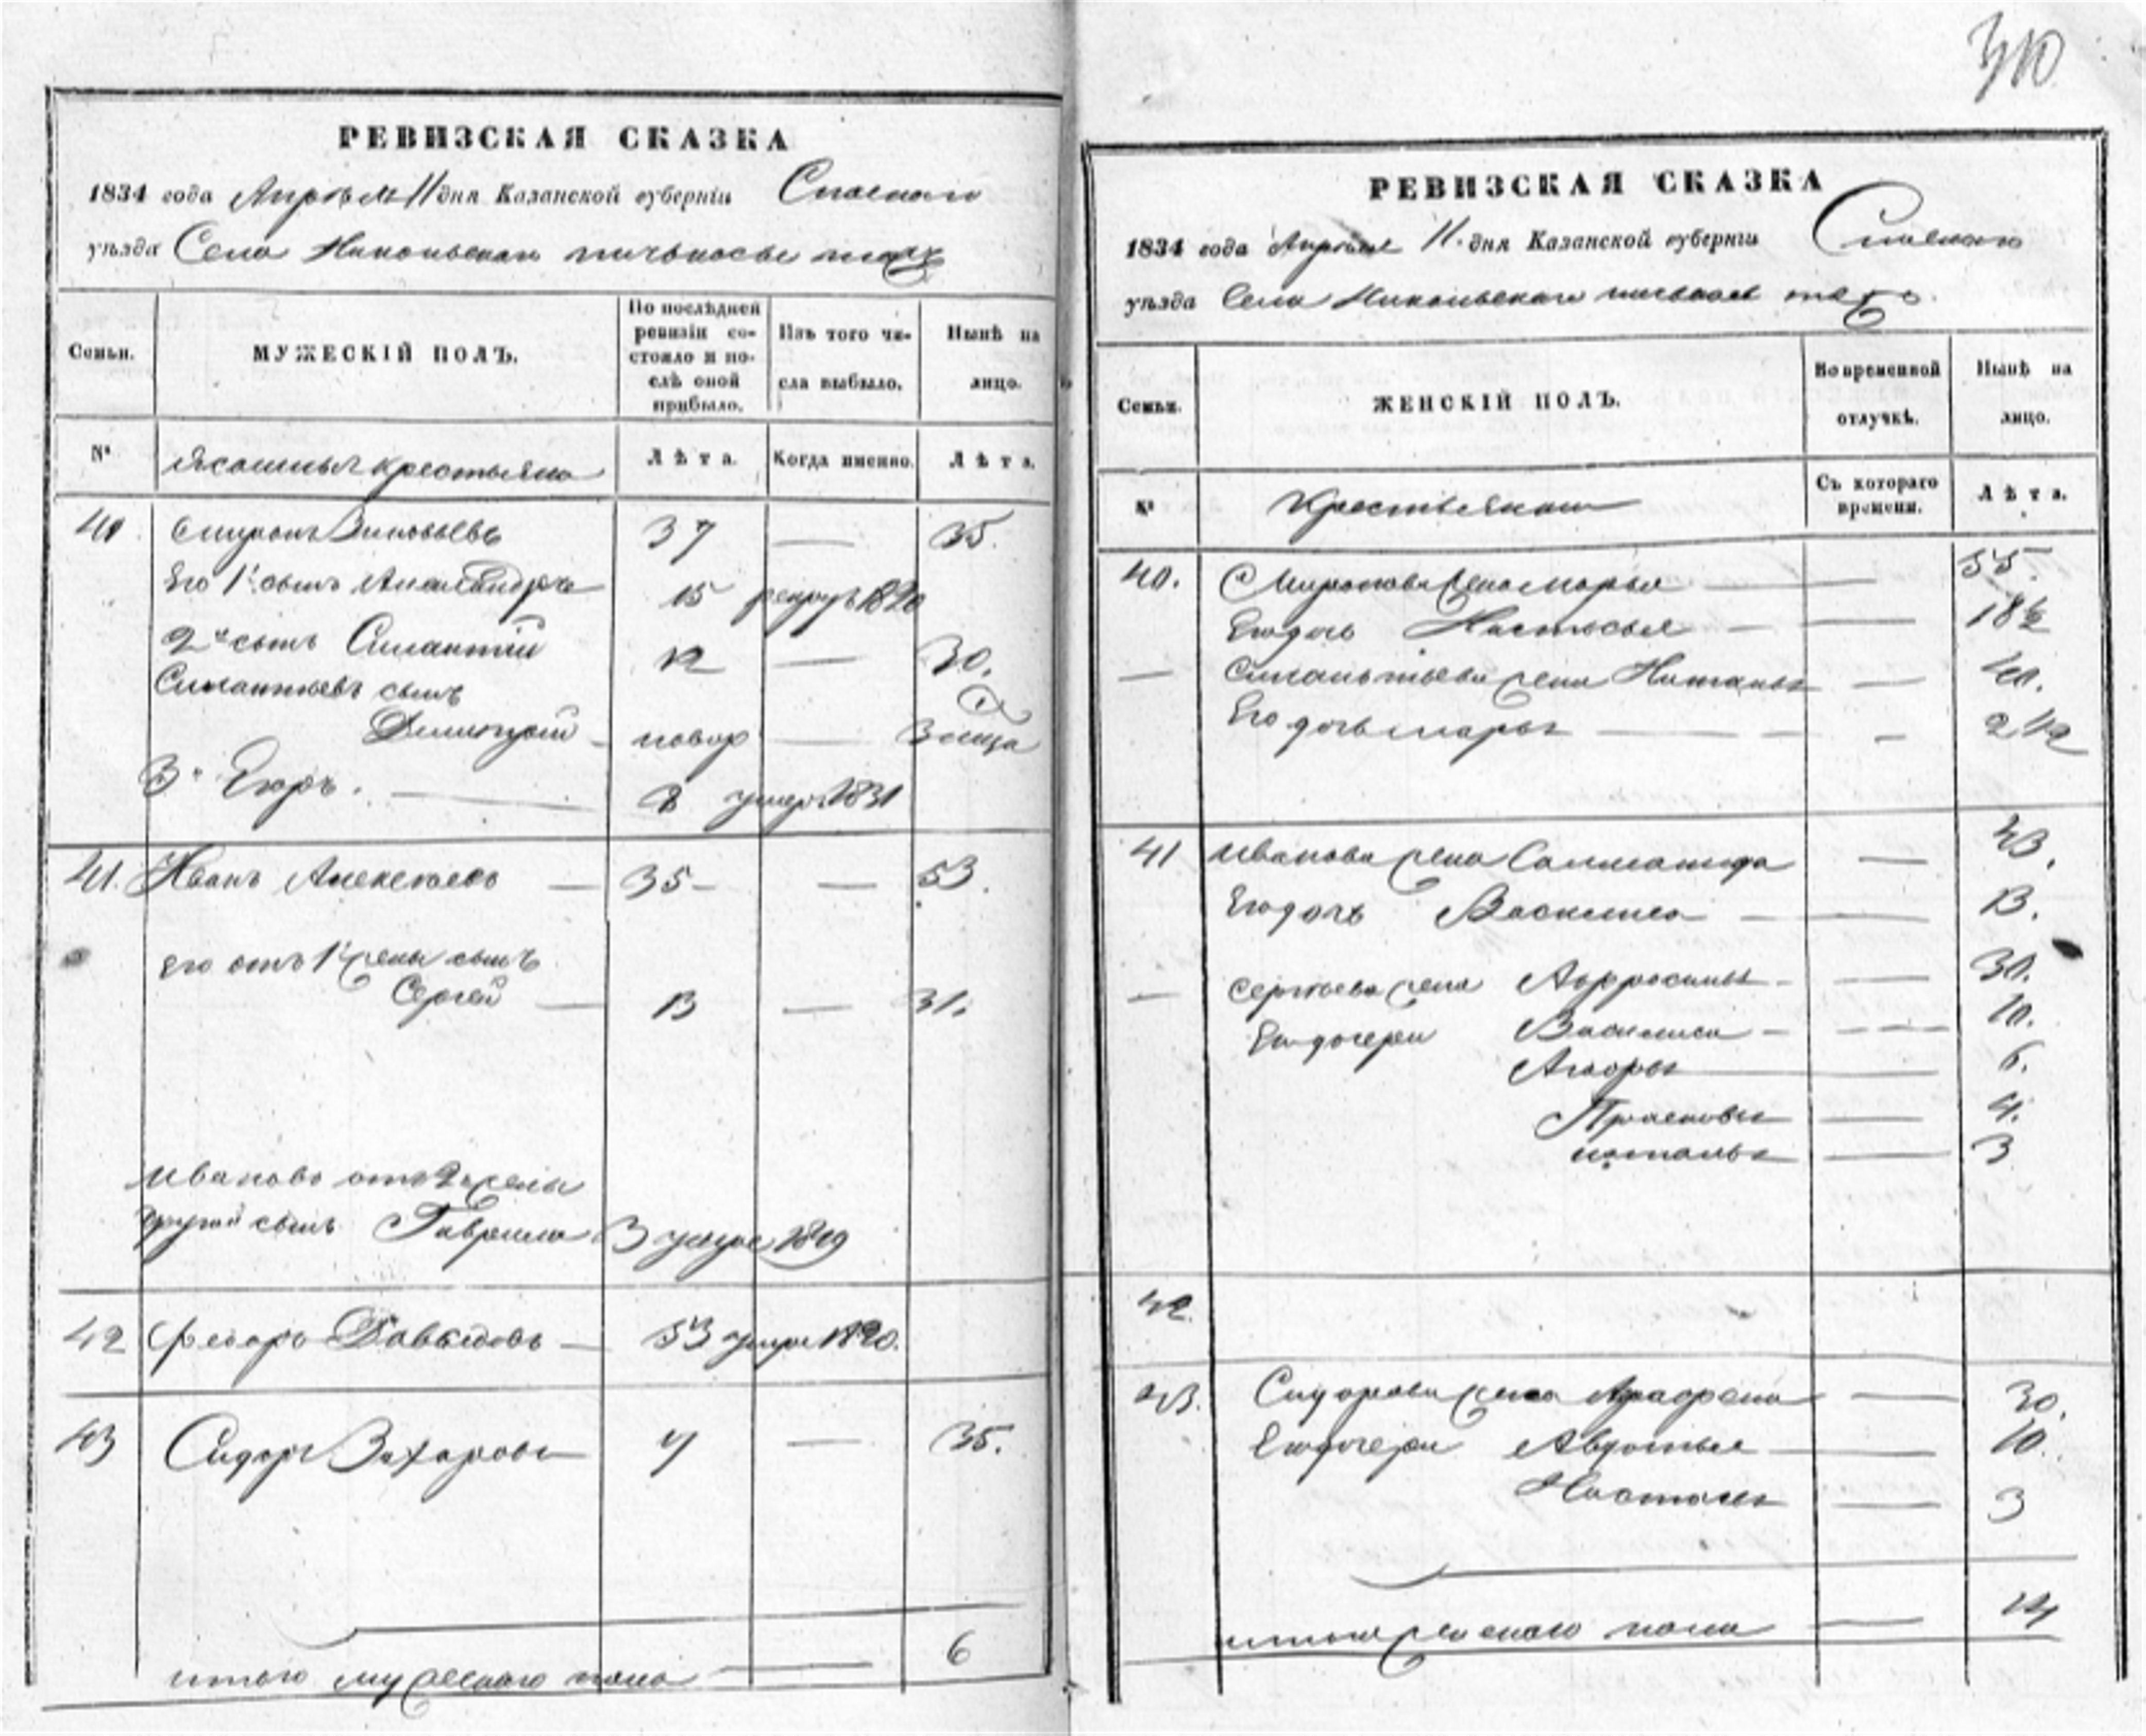 310
РЕВИЗСКАЯ СКАЗКА
1834 года Апреля 11 дня Казанской губернiи Спаскаго
уѣзда Села Никольскаго тожъ
Семьи.
МУЖЕСКIЙ ПОЛЪ.
По послѣдней ревизiи состояло и послѣ оной прибыло.
Изъ того числа выбыло.
Нынѣ на лицо.
№
Ясашныя крестьяна
Лѣта.
Когда именно.
Лѣта.
40 Зиновьевъ 37 —
Его 1й сынъ Александра 15 рекрут 1820
2й сынъ Силантiй 12 — 30.
Силантьевъ сынъ
Дмитрiй новор — 3 меца
3й Егоръ. 8 умер 1831
41. Иванъ Алексеевъ — 35 — — 53.
Его отъ 1й жены сынъ
Сергей — 13 — 31.
Иванова отъ 2й жены
другой сынъ Гаврила 3 умре 1819
42 Федоръ Давыдовъ — 53 умре 1820.
43 Сидоръ Захаровъ — 35.
итого мужескаго пола — 6
РЕВИЗСКАЯ СКАЗКА
1834 года Апреля 11 дня Казанской губернiи Спаскаго
уѣзда Села Никольскаго тожъ
Семьи.
ЖЕНСКIЙ ПОЛЪ.
Во временной отлучкѣ.
Нынѣ на лицо.
№
Крестьянки
Съ котораго времени.
Лѣта.
40. Миронова жена Марья — 55.
Его дочь Настасья — 18½
— Силантьева жена Наталья — 40.
Его дочь Марья — 2 1/2
41 Иванова жена Соломонида — 43.
Его дочь Василиса — 13.
— Сергеева жена Афросинья — 30.
Его дочери Василиса — 10.
— 6.
Прасковья — 4.
Наталья — 3
42
43. Сидорова жена — 30.
Его дочери Авдотья — 10.
— 3
итого женскаго пола — 14